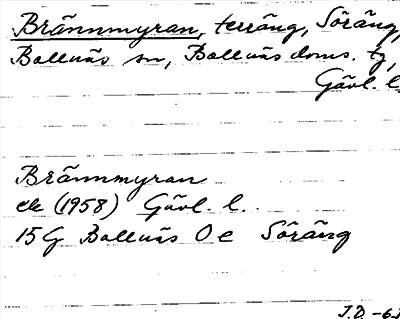 Brännmyran, terräng, Söräng,
Bollnäs sn, Bollnäs doms. tg,
Gävl. l.
Brännmyran
ek (1958) Gävl. l.
15G Bollnäs 0 e Söräng
J.D. -63